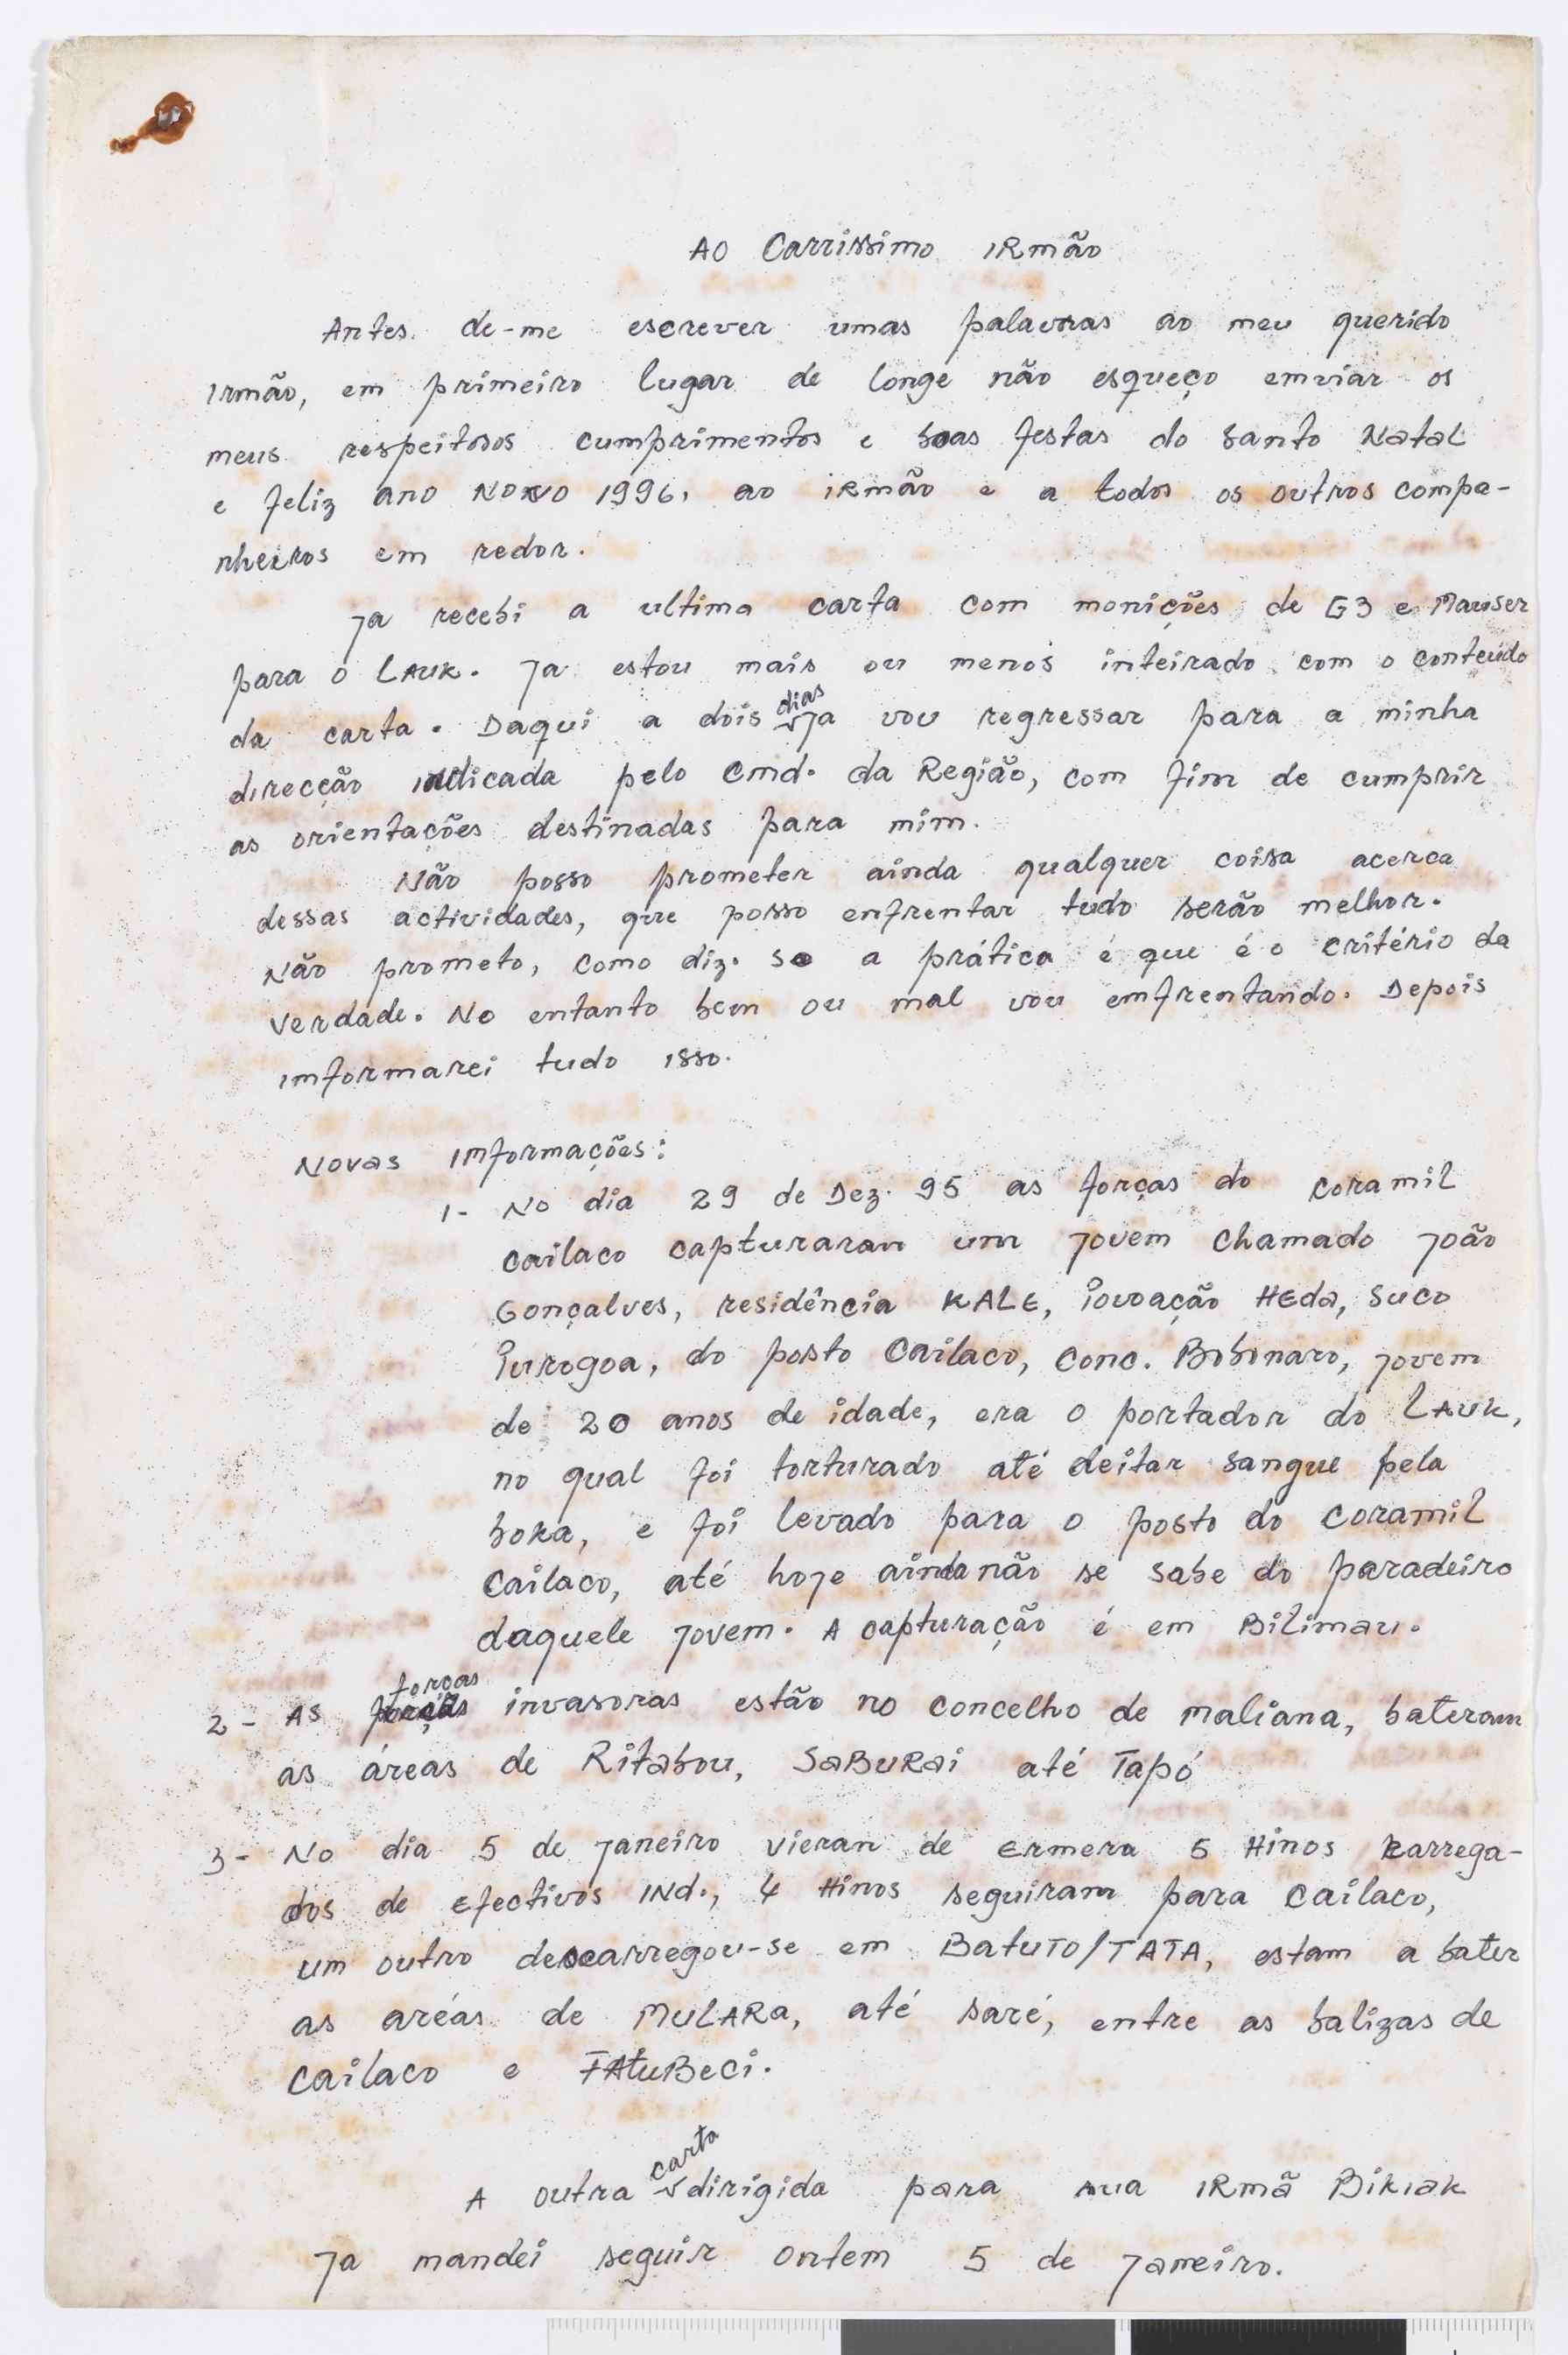 AO Carrissimo IRmão
Antes de-me escrever umas palavras ao meu querido
Irmão, em primeiro lugar de longe não esqueço emviar os
meus respeitosos cumprimentos e boas festas do santo Natal
e feliz ano NOVO 1996, ao irmão e a todos os outros compa-
nheiros em redor.
Ja recebi a ultima carta com monições de G3 e Mauser
para o LAUK. Ja estou mais ou menos inteirado com o conteúdo
da carta. Daqui a dois dias ja vou regressar para a minha
direcção indicada pelo Cmd. da Região, com fim de cumprir
as orientações destinadas para mim.
Não posso prometer ainda qualquer coisa acerca
dessas actividades, que posso enfrentar tudo serão melhor.
Não prometo, como diz. so a prática é que é o critério da
verdade. No entanto bem ou mal vou emfrentando. Depois
imformarei tudo isso.
Novas imformações:
1- No dia 29 de Dez. 95 as forças do coramil
cailaco capturaran um jovem chamado joão
Gonçalves, residência KALE, Povoação HEda, suco
Purogoa, do posto Cailaco, conc. Bobonaro, jovem
de 20 anos de idade, era o portador do LAUK,
no qual foi torturado até deitar sangue pela
boka, e foi levado para o posto do coramil
Cailaco, até hoje ainda não se sabe do paradeiro
daquele jovem. A capturação é em Bilimau.
2- As forças invasoras estão no concelho de maliana, bateram
as áreas de Ritabou, SaBURai até Tapó
3- No dia 5 de janeiro vieran de Ermera 5 Hinos karrega-
dos de Efectivos INd., 4 Hinos seguiram para cailaco,
um outro descarregou-se em BatuTO/TATA, estam a bater
as aréas de MULARa, até saré, entre as balizas de
Cailaco e FAtuBeci.
A outra carta dirigida para sua IRmã Bikiak
Ja mandei seguir ontem 5 de janeiro.